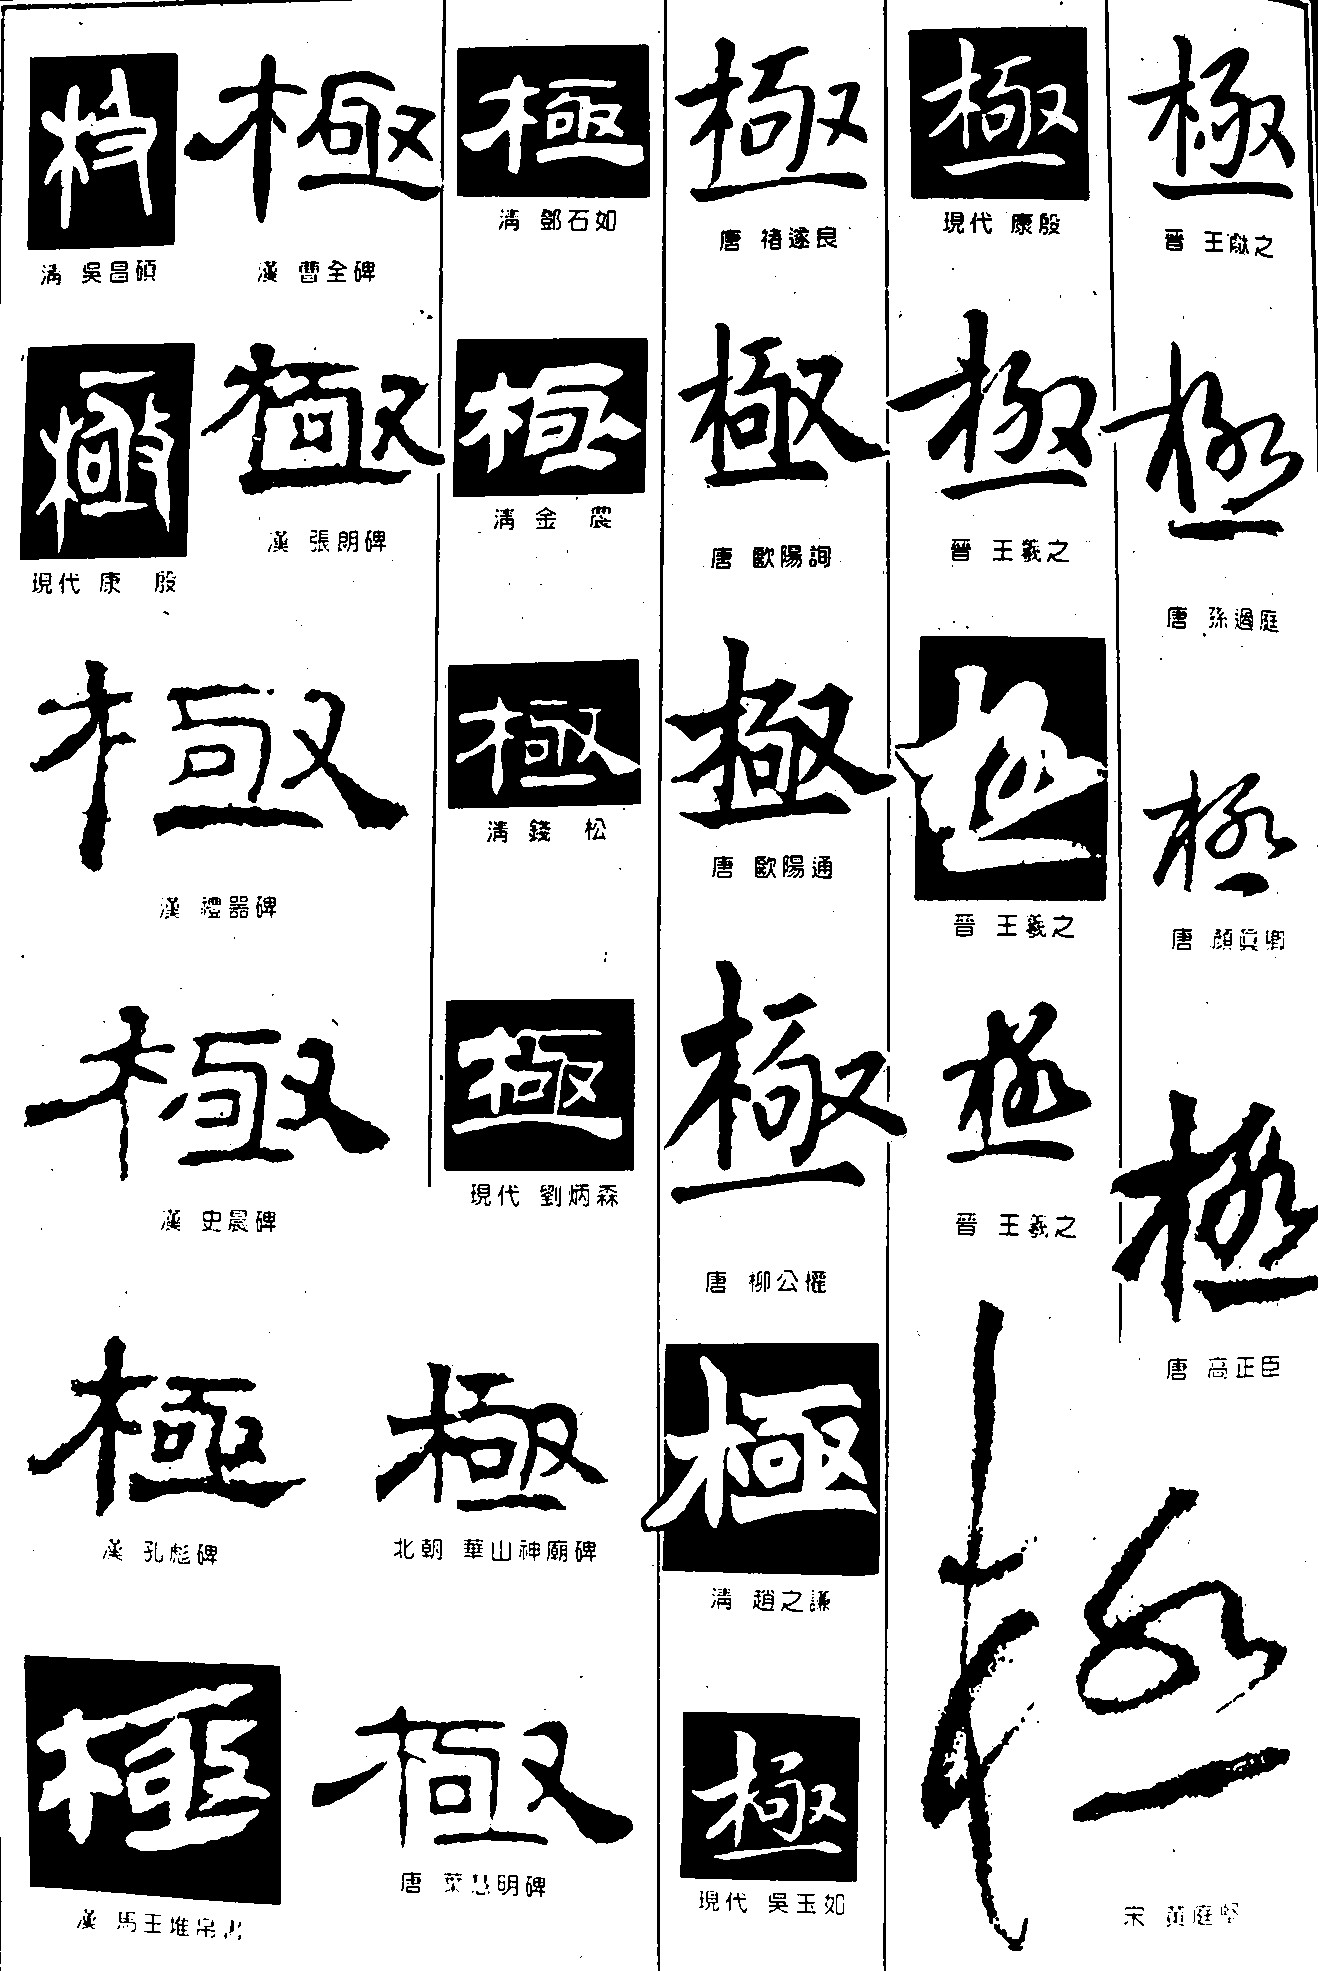 極
清 吳昌碩
極
漢 曹全碑
極
現代 康 殷
極
漢 張朗碑
極
漢 禮器碑
極
漢 史晨碑
極
漢 孔彪碑
極
北朝 華山神廟碑
極
漢 馬王堆帛書
極
唐 葉慧明碑
極
清 鄧石如
極
清 金 農
極
清 錢 松
極
現代 劉炳森
極
唐 褚遂良
極
唐 歐陽詢
極
唐 歐陽通
極
唐 柳公權
極
清 趙之謙
極
現代 吳玉如
極
現代 康殷
極
晉 王羲之
極
晉 王羲之
極
晉 王羲之
極
晉 王獻之
極
唐 孫過庭
極
唐 顏真卿
極
唐 高正臣
極
宋 黃庭堅